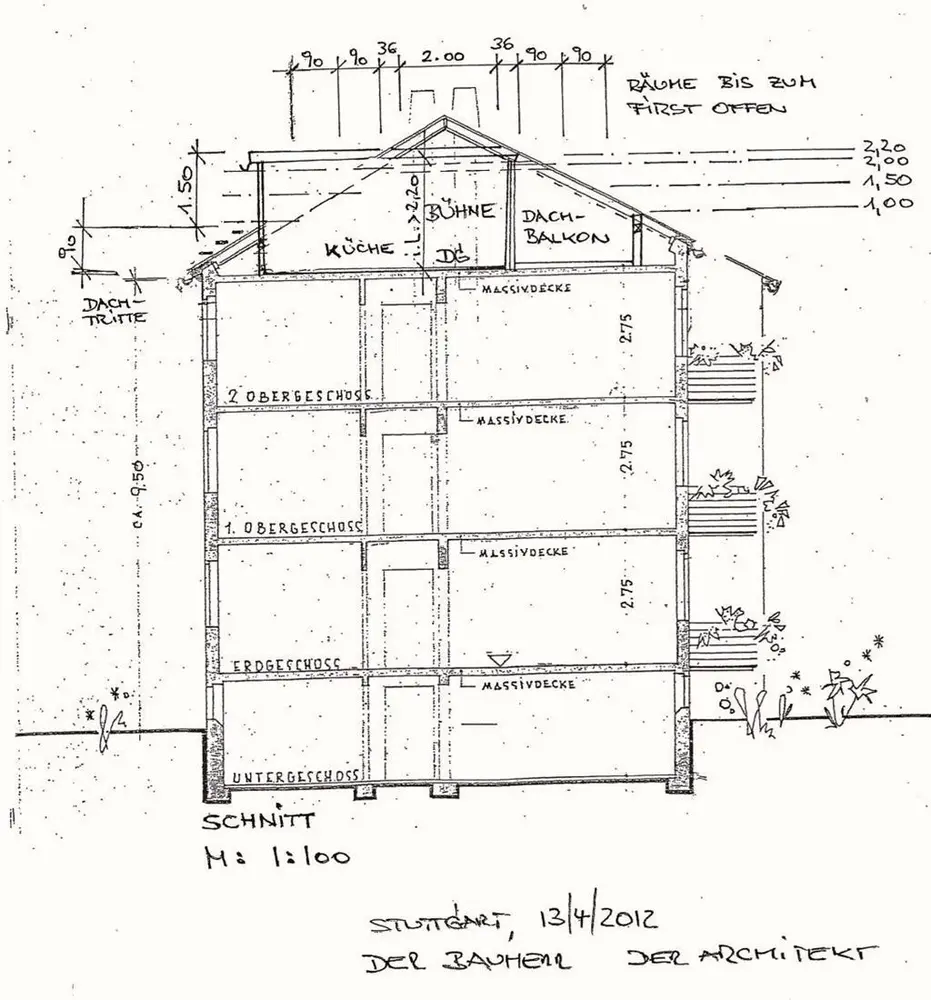 90 90 36 2.00 36 90 90
RÄUME BIS ZUM
FIRST OFFEN
2,20
2,00
1,50
1,00
1.50
90
i.L. > 2,20
BÜHNE
KÜCHE
DG
DACH-
BALKON
DACH-
TRITTE
MASSIVDECKE
2.75
2 OBERGESCHOSS
MASSIVDECKE
2.75
CA. 9.50
1. OBERGESCHOSS
MASSIVDECKE
2.75
ERDGESCHOSS
MASSIVDECKE
UNTERGESCHOSS
SCHNITT
M: 1:100
STUTTGART, 13/4/2012
DER BAUHERR DER ARCHITEKT